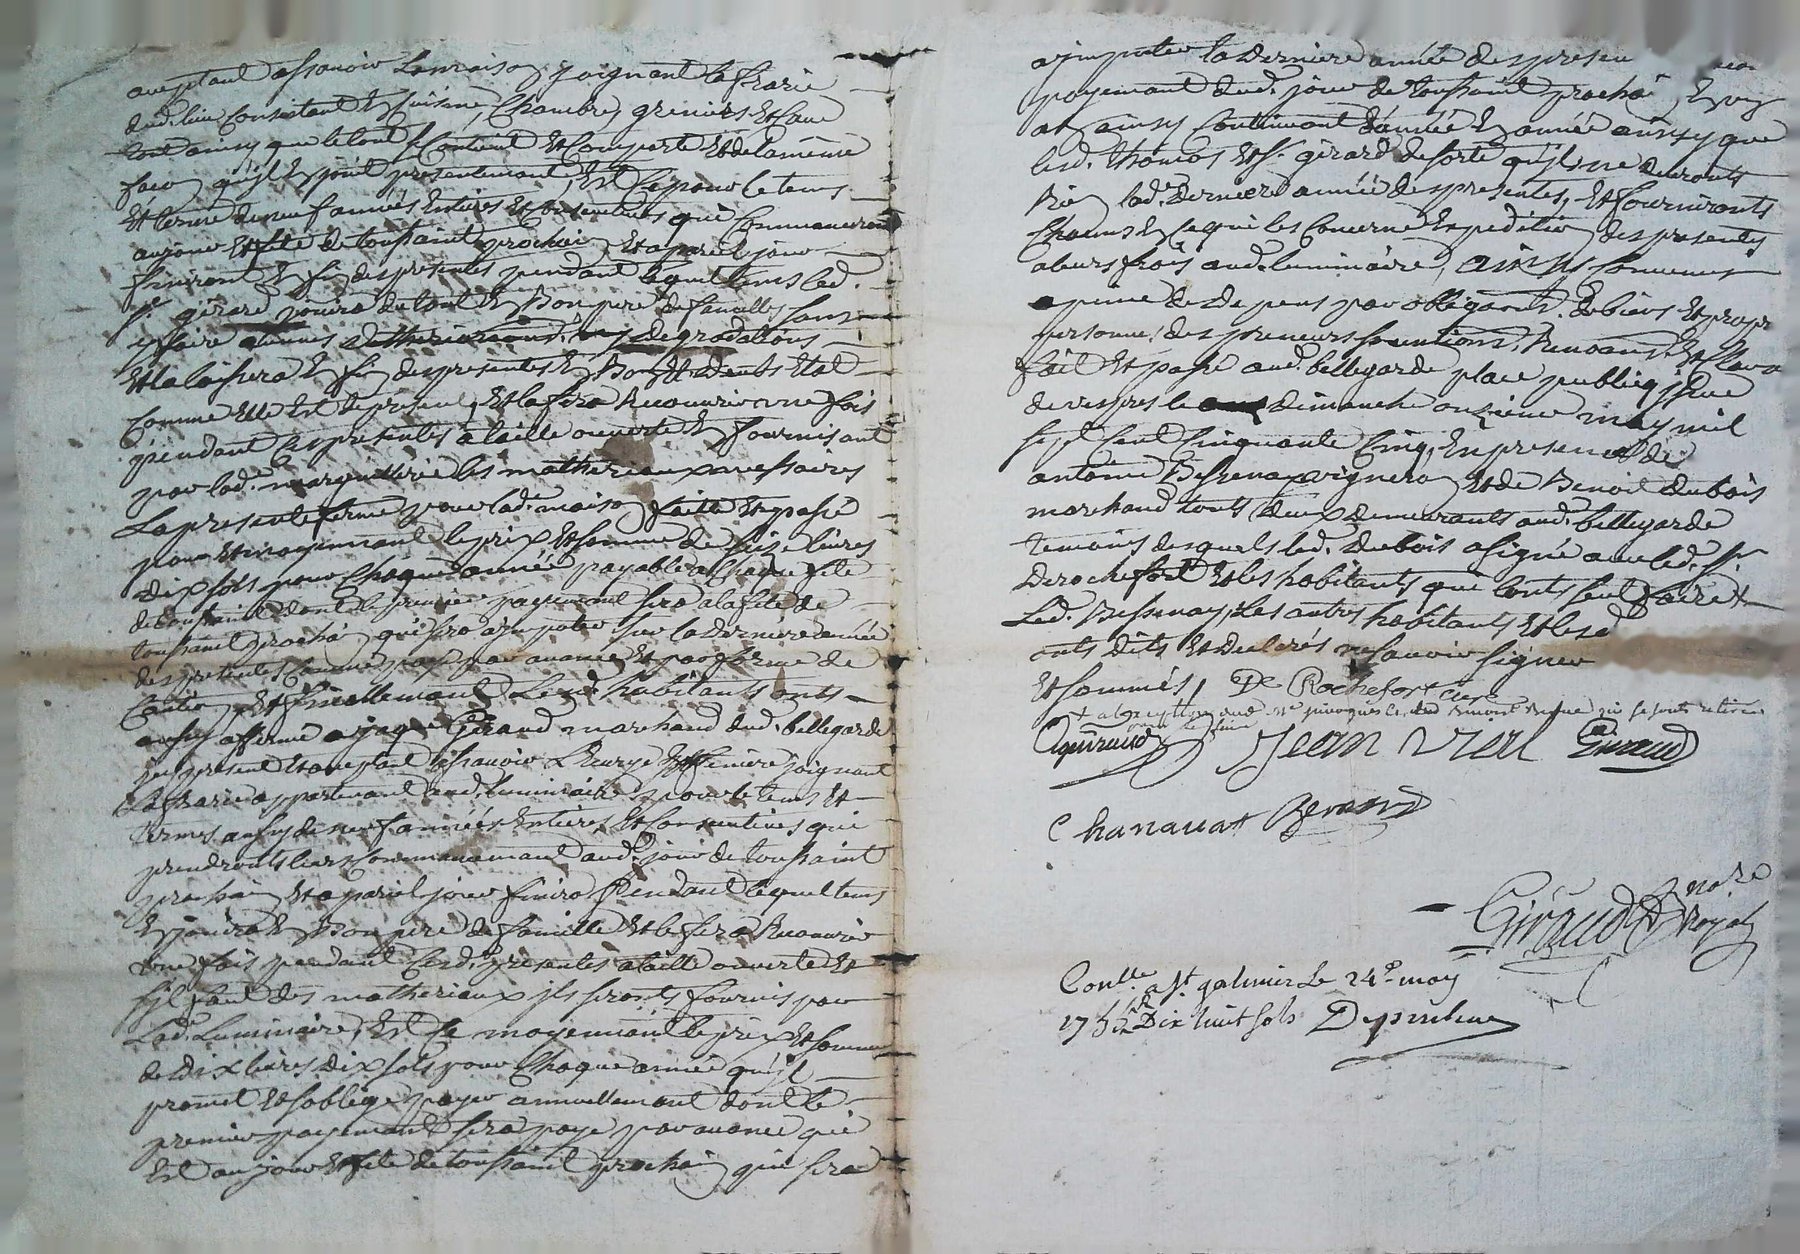 aceptant assavoir la maison joignant la frarie
dud. lieu consistant En cuisine, Chambre, greniers Et cave
tout ainsy que le tout Contient Et Comporte Et de la meme
facon qu'jl En jouit presentement, Est Ce pour le tems
Et terme de neuf années Entieres Et Consecutives qui Commanceront
au jour Et fete de toussaint prochain Et a pareil jour
finiront En fin des presentes pendant lequel tems led.
Sr. girard jouira du tout En Bon pere de familles sans
y faire aucunes detherioraons. degradations
Et la laissera En fin des presentes En Bon Et Etat
Comme Elle Est de present, Et la fera Recouvrir une fois
pendant Ces presentes a taille ouverte En fournisant
par lad. marguillerie les matheriaux nessaires
La presente ferme pour lad. maison faitte Et passé
pour Et moyennant le prix Et somme de seize livres
dix sols pour Chaque année payable a Chaque fete
de toussaint dont le premier payement sera a la fete de
toussaint prochain qui sera ajmputer sur la derniere année
des presentes Comme payé par avance Et par forme de
Caution, Et finallemant Lesd. habitants onts
aussy afferme a jaque Giraud marchand dud. bellegarde
jcy present Et aceptant assavoir L'Ecurye Et feniere joignant
La frarie appartenant aud. luminaire pour le tems Et
termes aussy de neuf années Entieres Et Consecutives qui
prendronts leurs Commancemant aud. jour de toussaint
prochain Et a pareil jour finira Pendant lequel tems
En jouira En Bon pere de famille Et le fera Recouvrir
une fois pendant Cesd. presentes a taille ouverte Et
s'jl faut des matheriaux jls seronts fournis par
Lad. Luminaire, Est Ce moyennant le prix Et somme
de Dix livres Dix sols pour Chaque année qu'jl
promet Et soblige payer annuellemant dont le
premier payemant sera payé par avance qui
Est au jour Et fete de toussaint prochain qui sera
ajmputer la Derniere année des presen
payemant dud. jour de toussaint prochain, En
an ainsy Continuant d'année En année ainsy que
lesd. thomas Et Sr. girard de sorte qu'jls ne devronts
Rien lad. Derniere année des presentes, Et fournironts
Chacuns En Ce qui les Concerne Expedition des presentes
a leurs frais aud. luminaire, ainsy Convenus
a peine de depens par obligaons. de biens Et
personnes des preneurs soumtions. Renoaons. Et Clauses
fait Et passé aud. bellegarde place publique jssue
de vespres le dimanche onzieme may mil
sept Cent Cinquante Cinq, En presence de
antoine Bessenay vigneron Et de Benoit dubois
marchand touts deux demeurants aud. bellegarde
temoins desquels led. Dubois a signé avec led. Sr.
Derochefort Et les habitants qui l'onts seut faire +
Led. Bessenay, Les autres habitants Et lesd
onts dits Et declarés ne savoir signer
Et sommés, De Rochefort curé
Guiraud Jean Vial Giraud
Chanavat Gerard
Giraud nore
Royal
Conlle. a St. galmier Le 24e. may
1755 Dix huit sols